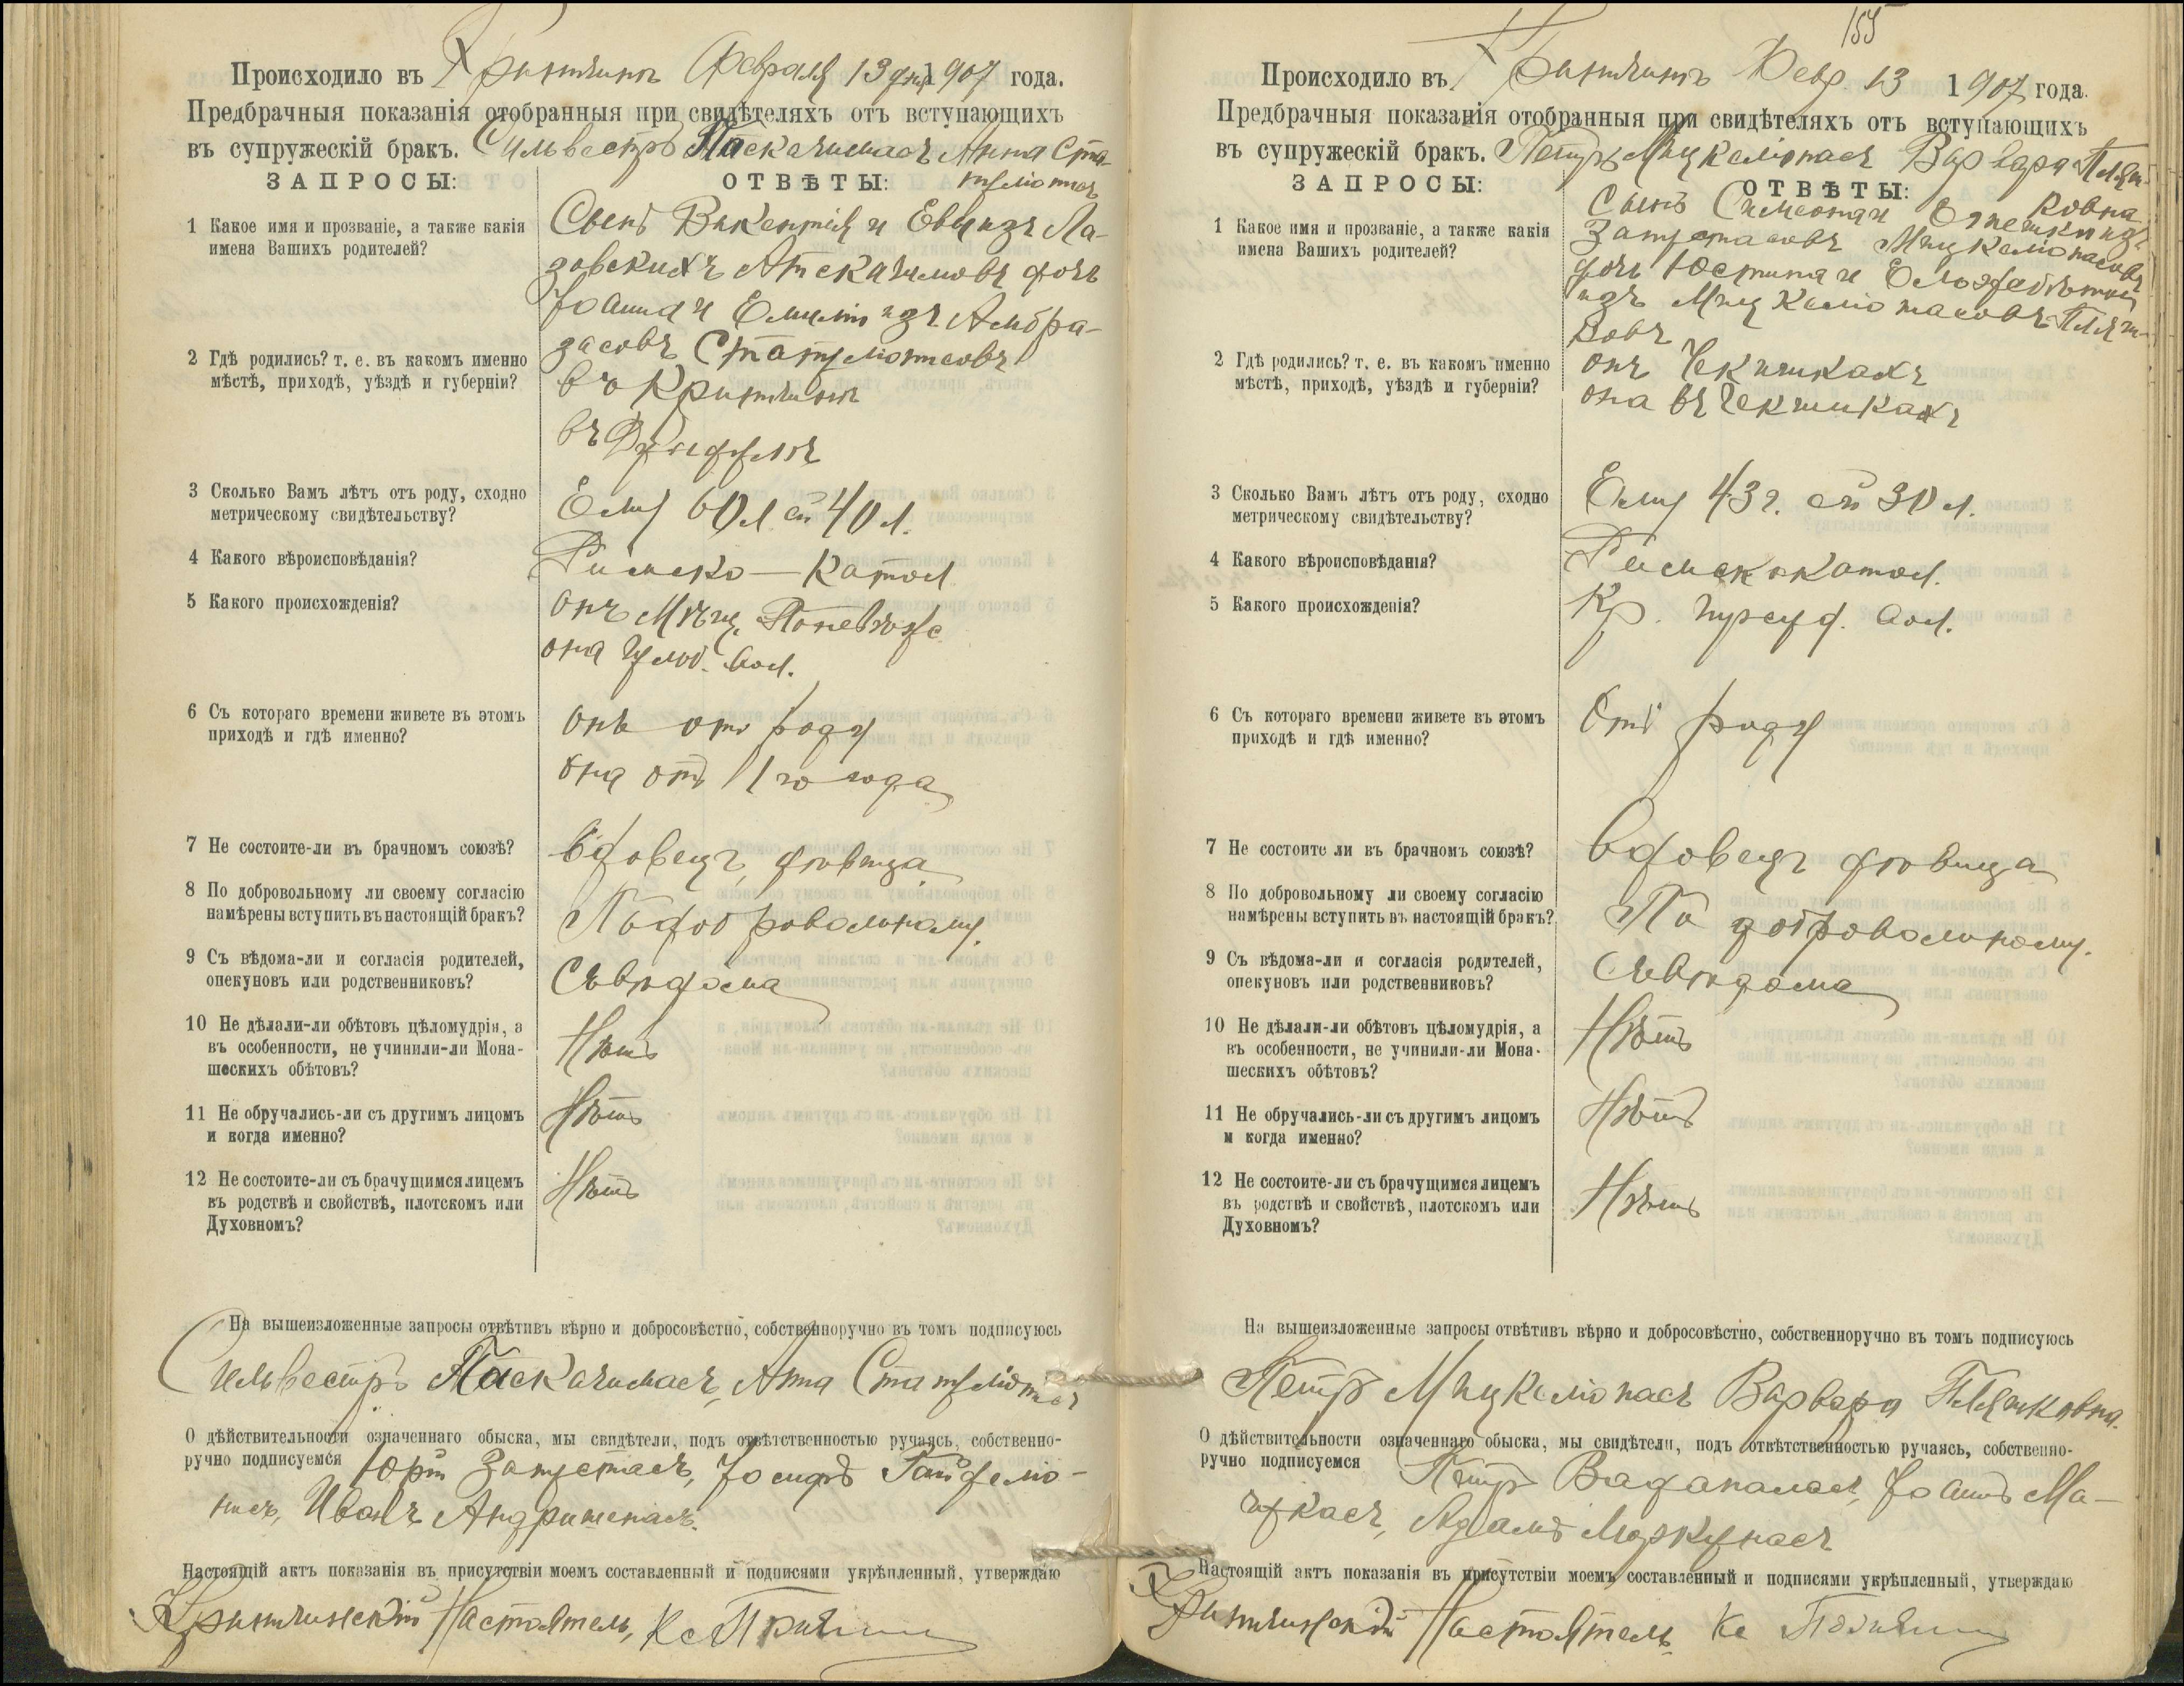 Происходило въ Февраля 13 дня 1907 года.
Предбрачныя показанія отобранныя при свидѣтеляхъ отъ вступающихъ
въ супружескій бракъ. Сильвестръ Анна Ста-
ЗАПРОСЫ: ОТВѢТЫ:
1 Какое имя и прозваніе, а также какія
имена Вашихъ родителей?
Сынъ Викентія и Евы изъ Ла-
зовскихъ дочь
Іоанна и Емиліи изъ Амбра-
засовъ
2 Гдѣ родились? т. е. въ какомъ именно
мѣстѣ, приходѣ, уѣздѣ и губерніи?
3 Сколько Вамъ лѣтъ отъ роду, сходно
метрическому свидѣтельству?
Ему 60 л. ей 40 л.
4 Какого вѣроисповѣданія?
Римско-Катол
5 Какого происхожденія?
онъ Мѣщ.
она вол.
6 Съ котораго времени живете въ этомъ
приходѣ и гдѣ именно?
онъ отъ роду
она отъ 1 го года
7 Не состоите-ли въ брачномъ союзѣ?
Вдовецъ, дѣвица
8 По добровольному ли своему согласію
намѣрены вступить въ настоящій бракъ?
По добровольному.
9 Съ вѣдома-ли и согласія родителей,
опекуновъ или родственниковъ?
Съ вѣдома
10 Не дѣлали-ли обѣтовъ цѣломудрія, а
въ особенности, не учинили-ли Мона-
шескихъ обѣтовъ?
Нѣтъ
11 Не обручались-ли съ другимъ лицомъ
и когда именно?
Нѣтъ
12 Не состоите-ли съ брачущимся лицемъ
въ родствѣ и свойствѣ, плотскомъ или
Духовномъ?
Нѣтъ
На вышеизложенные запросы отвѣтивъ вѣрно и добросовѣстно, собственноручно въ томъ подписуюсь
Сильвестръ Анна
О дѣйствительности означеннаго обыска, мы свидѣтели, подъ отвѣтственностью ручаясь, собственно-
ручно подписуемся Іосифъ
Иванъ
Настоящій актъ показанія въ присутствіи моемъ составленный и подписями укрѣпленный, утверждаю
Настоятель, Кс
155
Происходило въ Февр. 13 1907 года.
Предбрачныя показанія отобранныя при свидѣтеляхъ отъ вступающихъ
въ супружескій бракъ. Петръ Мицкелюнасъ Варвара Пляш-
ковна
ЗАПРОСЫ: ОТВѢТЫ:
1 Какое имя и прозваніе, а также какія
имена Вашихъ родителей?
Сынъ Симеона и изъ
Мицкелюнасовъ
дочь Юстина и
изъ Мицкелюнасовъ Пляш-
ковъ
2 Гдѣ родились? т. е. въ какомъ именно
мѣстѣ, приходѣ, уѣздѣ и губерніи?
онъ Чекишкахъ
она въ Чекишкахъ
3 Сколько Вамъ лѣтъ отъ роду, сходно
метрическому свидѣтельству?
Ему 43 г. ей 30 л.
4 Какого вѣроисповѣданія?
Римскокатол.
5 Какого происхожденія?
Кр. вол.
6 Съ котораго времени живете въ этомъ
приходѣ и гдѣ именно?
Отъ роду
7 Не состоите ли въ брачномъ союзѣ?
Вдовецъ дѣвица
8 По добровольному ли своему согласію
намѣрены вступить въ настоящій бракъ?
По добровольному.
9 Съ вѣдома-ли и согласія родителей,
опекуновъ или родственниковъ?
Съ вѣдома
10 Не дѣлали-ли обѣтовъ цѣломудрія, а
въ особенности, не учинили-ли Мона-
шескихъ обѣтовъ?
Нѣтъ
11 Не обручались-ли съ другимъ лицомъ
и когда именно?
Нѣтъ
12 Не состоите-ли съ брачущимся лицемъ
въ родствѣ и свойствѣ, плотскомъ или
Духовномъ?
Нѣтъ
На вышеизложенные запросы отвѣтивъ вѣрно и добросовѣстно, собственноручно въ томъ подписуюсь
Петръ Мицкелюнасъ Варвара Пляшковна.
О дѣйствительности означеннаго обыска, мы свидѣтели, подъ отвѣтственностью ручаясь, собственно-
ручно подписуемся Петръ Іоаннъ Ма-
Адамъ Моркунасъ
Настоящій актъ показанія въ присутствіи моемъ составленный и подписями укрѣпленный, утверждаю
Настоятель Кс